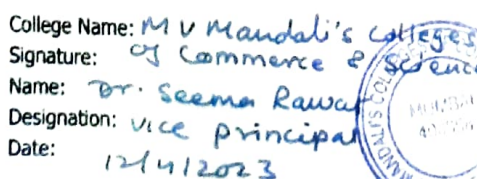 College Name: M V Mandali's Colleges
Signature: of Commerce & Science
Name: Dr. Seema Rawat
Designation: Vice principal
Date: 12/4/2023